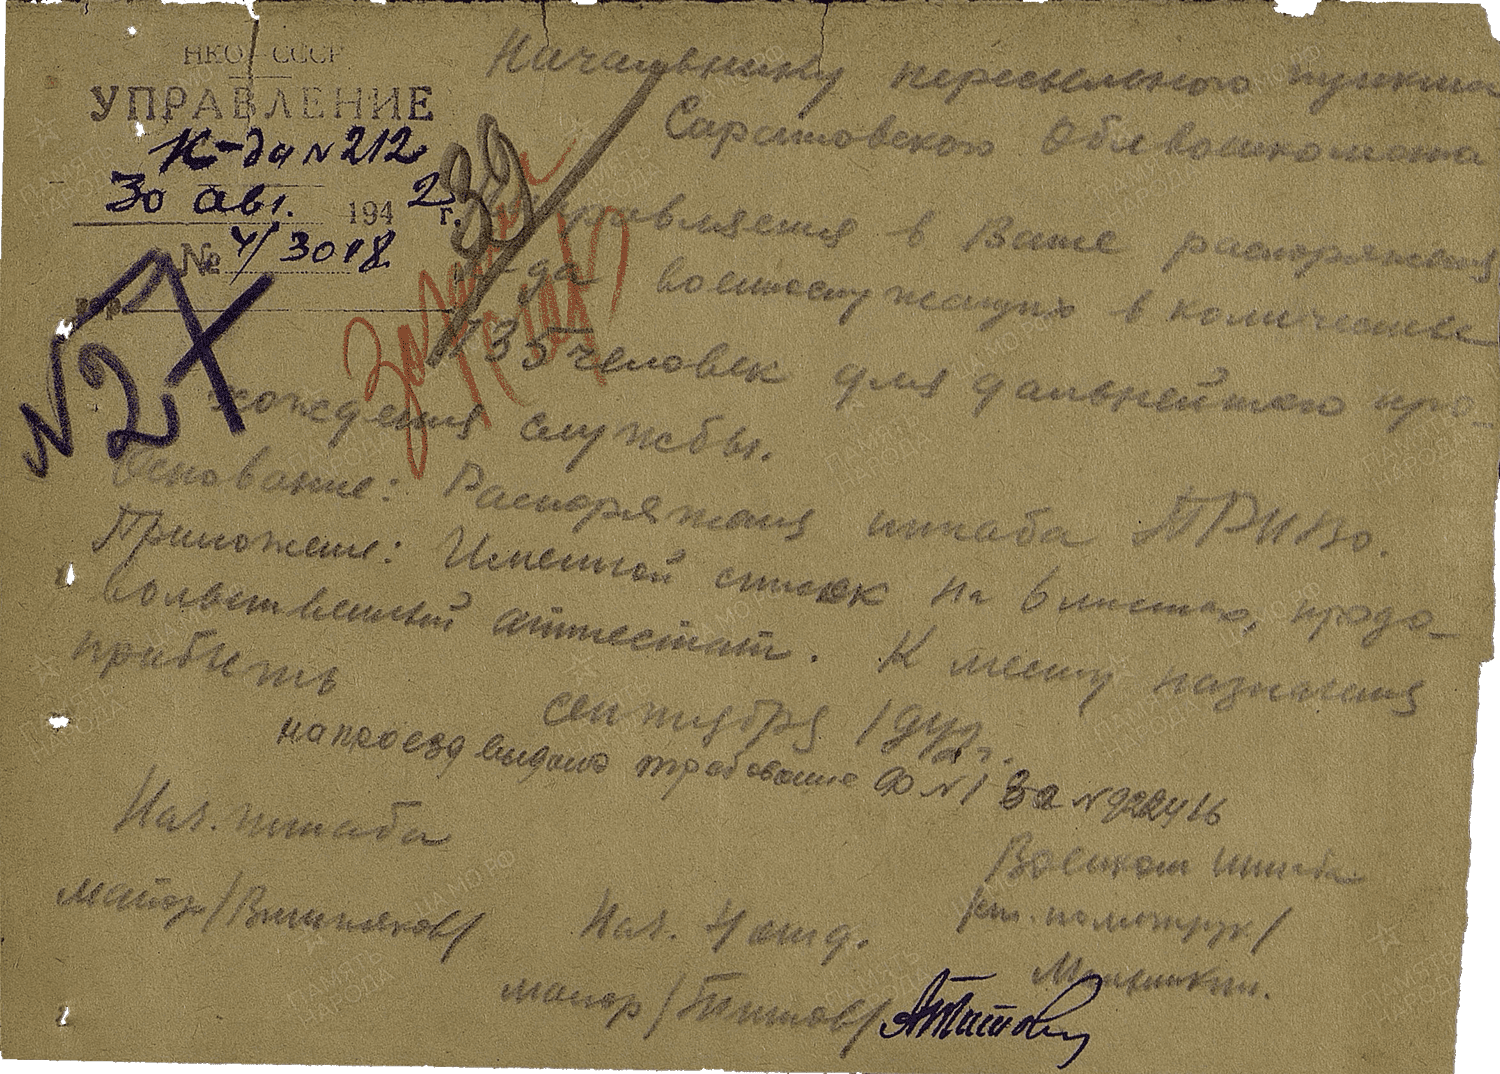 НКО - СССР
УПРАВЛЕНИЕ
К-да №212
30 авг. 1942 г.
№ 4/3018
гор.
№27
39
Начальнику пересыльного пункта
Саратовского Облвоенкомата
Направляется в Ваше распоряжение
к-да военослужащих в количестве
135 человек для дальнейшего про-
хождения службы.
Основание: Распоряжения штаба ПРИВо.
Приложение: Именной список на 6 листах, продо-
вольственный аттестат. К месту назначения
прибыть
сентября 1942 г.
на проезд выдано требование Ф №1 за №922416
Нач. штаба
майор /Вишняков/
Военком штаба
/ст. политрук/
Нач. 4 отд.
майор /Титов/